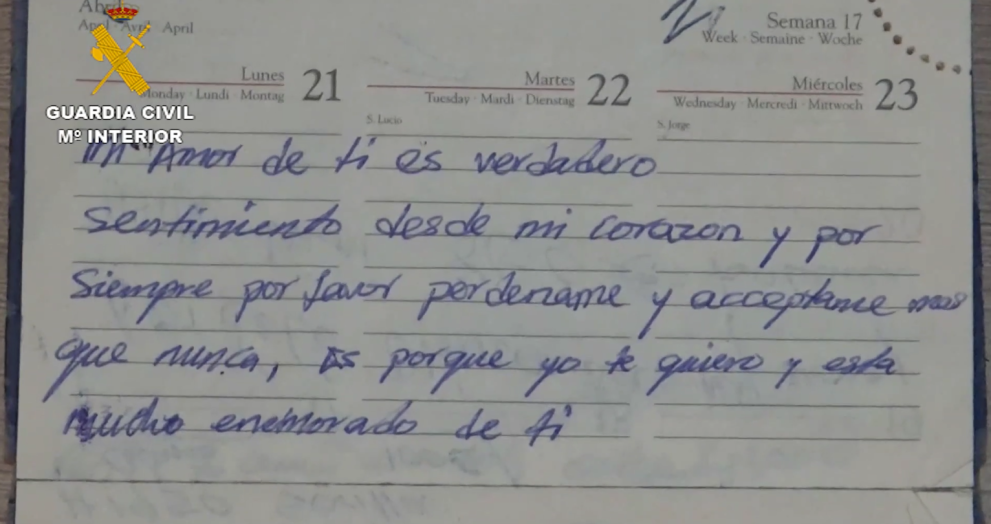 Abril
April · Avril · April
Semana 17
Week · Semaine · Woche
GUARDIA CIVIL
Mº INTERIOR
Lunes 21
Monday · Lundi · Montag
Martes 22
Tuesday · Mardi · Dienstag
S. Lucio
Miércoles 23
Wednesday · Mercredi · Mittwoch
S. Jorge
Mi Amor de ti es verdadero
sentimiento desde mi corazon y por
Siempre por favor perdename y acceptame mas
que nunca, Es porque yo te quiero y esta
mucho enemorado de ti